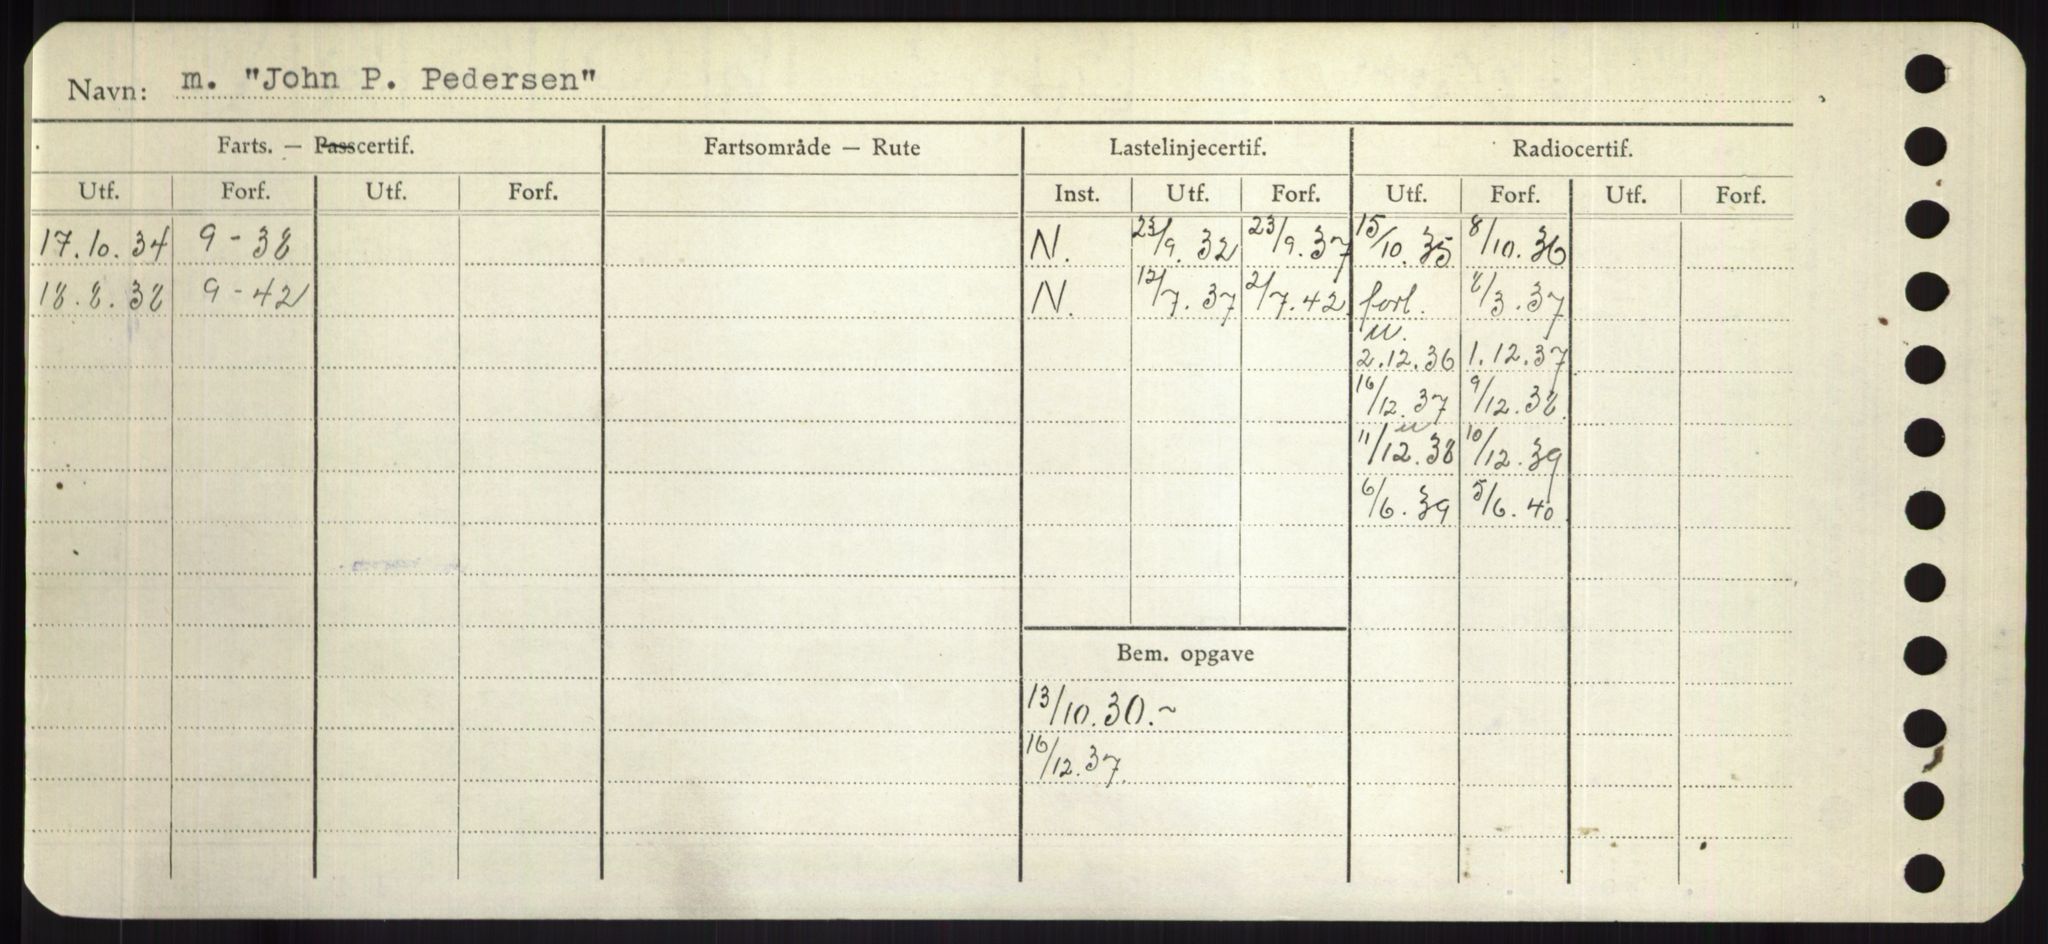 Navn: m. "John P. Pedersen"
Farts. — Passcertif. Fartsområde — Rute Lastelinjecertif. Radiocertif.
Utf. Forf. Utf. Forf. Inst. Utf. Forf. Utf. Forf. Utf. Forf.
17.10.34 9-38 N. 23/9.32 23/9.37 15/10.35 8/10.36
18.8.38 9-42 N. 12/7.37 2/7.42. forl. 8/3.37
u.
2.12.36 1.12.37
16/12.37 9/12.38.
u
11/12.38 10/12.39
6/6.39 5/6.40
Bem. opgave
13/10.30.~
16/12.37.